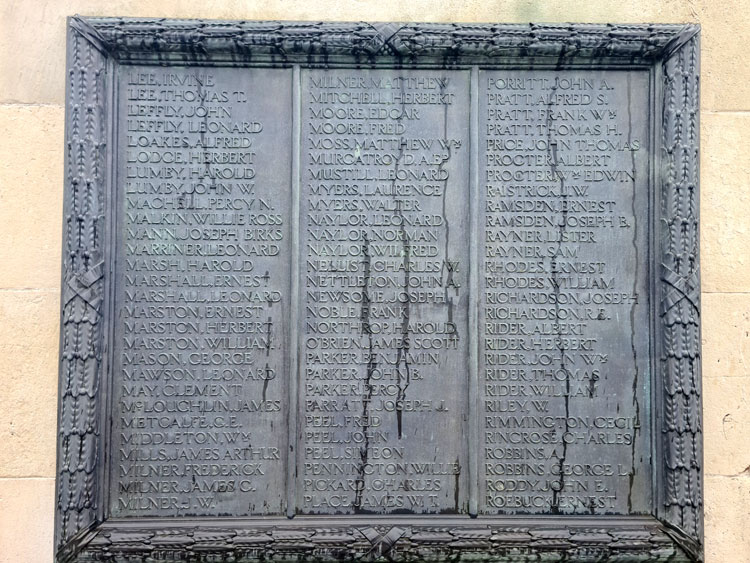 LEE, IRVINE
LEE, THOMAS T.
LEFFLY, JOHN
LEFFLY, LEONARD
LOAKES, ALFRED
LODGE, HERBERT
LUMBY, HAROLD
LUMBY, JOHN W.
MACHELL, PERCY N.
MALKIN, WILLIE ROSS
MANN, JOSEPH BIRKS
MARRINER, LEONARD
MARSH, HAROLD
MARSHALL, ERNEST
MARSHALL, LEONARD
MARSTON, ERNEST
MARSTON, HERBERT
MARSTON, WILLIAM
MASON, GEORGE
MAWSON, LEONARD
MAY, CLEMENT
McLOUCHLIN, JAMES
METCALFE, C.E.
MIDDLETON, Wᴹ
MILLS, JAMES ARTHUR
MILNER, FREDERICK
MILNER, JAMES C.
MILNER, H.W.
MILNER, MATTHEW
MITCHELL, HERBERT
MOORE, EDGAR
MOORE, FRED
MOSS, MATTHEW Wᴹ
MURGATROYD, A.E.P.
MUSTILL, LEONARD
MYERS, LAURENCE
MYERS, WALTER
NAYLOR, LEONARD
NAYLOR, NORMAN
NAYLOR, WILFRED
NELLIST, CHARLES W.
NETTLETON, JOHN A.
NEWSOME, JOSEPH
NOBLE, FRANK
NORTHROP, HAROLD
O'BRIEN, JAMES SCOTT
PARKER, BENJAMIN
PARKER, JOHN B.
PARKER, PERCY
PARRATT, JOSEPH J.
PEEL, FRED
PEEL, JOHN
PEEL, SIMEON
PENNINGTON, WILLIE
PICKARD, CHARLES
PLACE, JAMES W.T.
PORRITT, JOHN A.
PRATT, ALFRED S.
PRATT, FRANK Wᴹ
PRATT, THOMAS H.
PRICE, JOHN THOMAS
PROCTER, ALBERT
PROCTER, Wᴹ EDWIN
RAISTRICK, J.W.
RAMSDEN, ERNEST
RAMSDEN, JOSEPH B.
RAYNER, LISTER
RAYNER, SAM
RHODES, ERNEST
RHODES, WILLIAM
RICHARDSON, JOSEPH
RICHARDSON, R.E.
RIDER, ALBERT
RIDER, HERBERT
RIDER, JOHN Wᴹ
RIDER, THOMAS
RIDER, WILLIAM
RILEY, W.
RIMMINGTON, CECIL
RINCROSE, CHARLES
ROBBINS, A.
ROBBINS, GEORGE L.
RODDY, JOHN E.
ROEBUCK, ERNEST